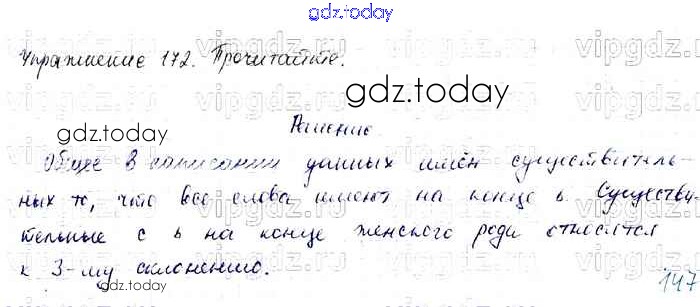 gdz.today
Упражнение 172. Прочитайте.
gdz.today
gdz.today
Решение
Общее в написании данных имён существитель-
ных то, что все слова имеют на конце ь. Существи-
тельные с ь на конце женского рода относятся
к 3-му склонению.
147